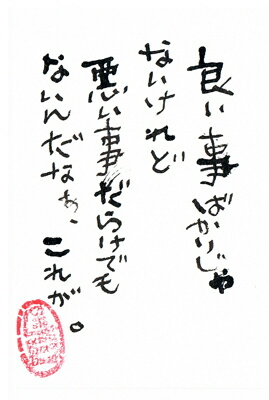 良い事ばかりじゃ
ないけれど
悪い事だらけでも
ないんだなぁ、これが。